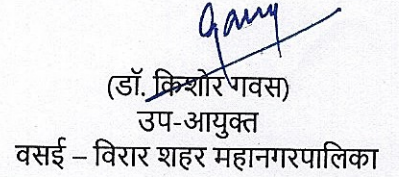 (डॉ. किशोर गवस)
उप-आयुक्त
वसई – विरार शहर महानगरपालिका